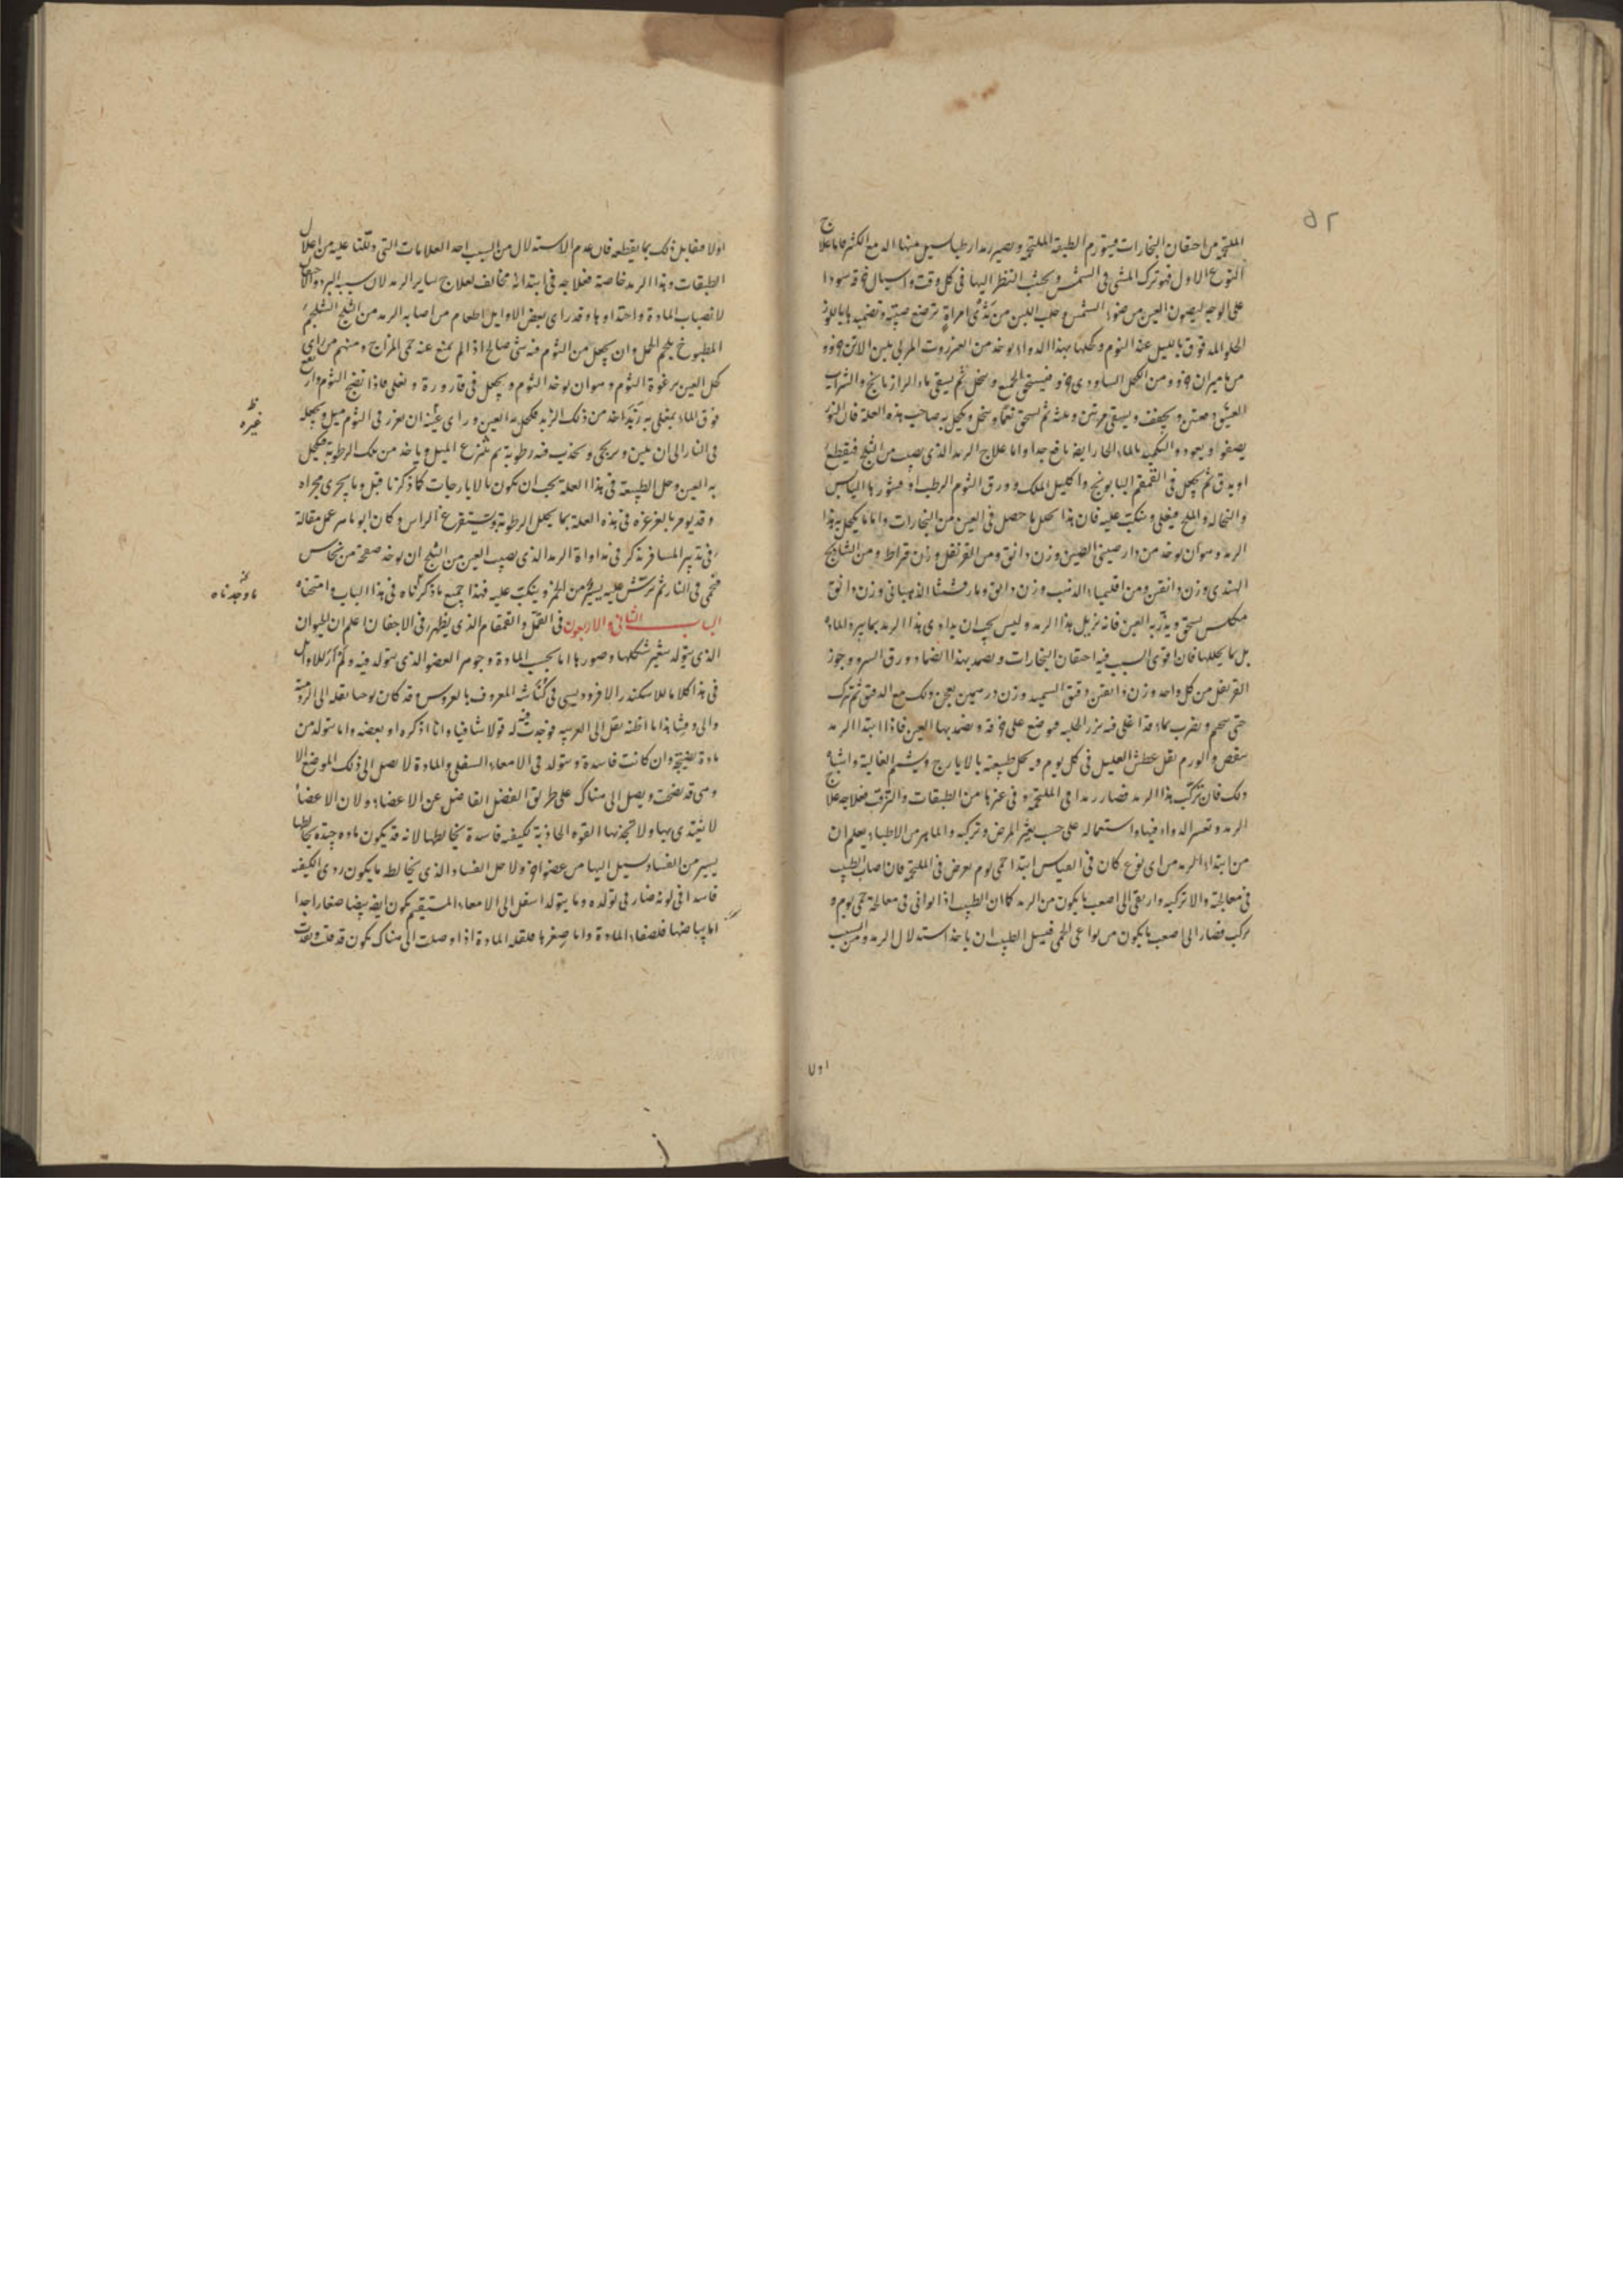 ٥٢
الملتحمة من احتقان البخارات فيتورم الطبقة الملتحمة ويصير رمدا رطبا يسيل منها الدمع الكثير فاما علاج
النوع الاول فهو ترك المشي في الشمس ويجتنب النظر اليها في كل وقت واسبال خرقة سودا
على الوجه ليصون العين من ضوء الشمس وحلب اللبن من ثدي امراة ترضع صبية وتضميدها باللوز
الحلو المدقوق بالليل عند النوم وكحلها بهذا الدواء يوخذ من العنزروت المربى بلبن الاتن جزو
من ماميران جزو ومن الكحل جزو فيسحق الجميع وينخل ثم يسقى ماء الرازيانج والشراب
العتيق ويجفف ويسقى مرتين وثلثة ثم يسحق نعما وينخل ويكحل به صاحب هذه العلة فان النور
يصفوا ويعود والتكميد بالماء الحار ايضا نافع جدا واما علاج الرمد الذي يصيب من الثلج فيقطع
او يدق ثم يجعل في القمقم البابونج واكليل الملك وورق الثوم الرطب او قشورها اليابس
والنخالة والملح فيغلى وينكب عليه فان هذا يحلل ما حصل في العين من البخارات واما ما يكحل به هذا
الرمد وهو ان يوخذ من دار صيني الصين وزن دانق ومن القرنفل وزن قيراط ومن الشاذنج
الهندي وزن دانقين ومن اقليمياء الذهب وزن دانق ومارقشيثا الذهباني وزن دانق
يسحق ويذر به العين فانه يزيل هذا الرمد وليس يجب ان يداوى هذا الرمد بما يبرد الماء
بل بما يحللها فان اقوى السبب فيه احتقان البخارات ويضمد بهذا الضماد ورق السرو وجوز
القرنفل من كل واحد وزن دانقين دقيق السميد وزن درهمين يعجن ذلك مع الدقيق ثم يترك
حتى يختمر ويضرب بماء قد اغلي فيه بزر الحلبة فيوضع على خرقة ويضمد بها العين فاذا ابتدا الرمد
ينقص والورم يقل عطش العليل في كل يوم ويحل طبيعته بالايارج ويشم الغالية واشباه
ذلك فان تركب هذا الرمد فصار رمدا في الملتحمة وفي غيرها من الطبقات فعلاجه علاج
الرمد وتغيير الدواء فيها واستعماله على حسب تغير المرض وتركيبه والماهر من الاطباء يعلم ان
من ابتداء الرمد من اي نوع كان في القياس ابتدا حمى يوم يعرض في الملتحمة فان اصاب الطبيب
في معالجته والا تركبه وارتقى الى اصعب ما يكون من الرمد كما ان الطبيب اذا توانى في معالجة حمى يوم
تركب فصار الى اصعب ما يكون من انواع الحمى فسبيل الطبيب ان ياخذ استدلال الرمد ومن السبب
اولا
اولا فيقابل ذلك بما يقطعه فان عدم الاستدلال من السبب اخذ العلامات التي دللنا عليه من اعلال
الطبقات وهذا الرمد خاصة فعلاجه في ابتدائه مخالف لعلاج ساير الرمد لان سببه البرد
لانصباب المادة واحتداوها وقد راى بعض الاوايل اطعام من اصابه الرمد من الثلج الشلجم
المطبوخ بلحم الحمل وان يجعل من الثوم فيه شي صالح اذا لم يمنع عنه حمى المزاج ومنهم من راى
كحل العين برغوة الثوم وهو ان يوخذ الثوم ويجعل في قارورة ويغلى فاذا نضج الثوم وارتفع
فوق الماء يغلى به زبد اخذ من ذلك الزبد فكحل به العين وراى غيره ان يغرز في الثوم ميل ويجعله
في النار الى ان يلين ويجذب فيه رطوبة ثم ينتزع الميل وياخذ من تلك الرطوبة فيكحل
به العين وحل الطبيعة في هذا العلة يجب ان يكون بالايارجات كما ذكرنا قبل وما يجري مجراه
وقد يومر بالغرغرة في هذه العلة بما يحلل الرطوبة ويستفرغ الراس وكان ابو ماهر عمل مقالة
في تدبير المسافر فذكر في مداواة الرمد الذي يصيب العين من الثلج ان يوخذ صفيحة من نحاس
فتحمى في النار ثم يرش عليه يسير من الخمر وينكب عليه فهذا جميع ما ذكرناه في هذا الباب وامتحناه
الباب الثاني والاربعون في القمل والقمقام الذي يظهر في الاجفان اعلم ان الحيوان
الذي يتولد يتغير شكلها وصورها اما بحسب المادة وجوهر العضو الذي يتولد فيه ولم ار للاوايل
في هذا كلاما الا للاسكندر الافروديسي في كناشه المعروف بالعروس وقد كان يوحنا نقله الى الرومية
والى وقتنا هذا ما اظنه نقل الى العربية فوجدت فيه له قولا شافيا وانا اذكره او بعضه واما يتولد من
مادة نضيجة وان كانت فاسدة ويتولد في الامعاء السفلى والمادة لا يصل الى ذلك الموضع الا
وهي قد نضجت ويصل الى هناك على طريق الفضل الفاضل عن الاعضاء ولان الاعضا
لا يغتذي بها ولا تجذبها القوة الجاذبة لكيفية فاسدة يخالطها لانه قد يكون مادة جيدة يخالطها
يسير من الفساد يسيل اليها من عضو اخر ولاجل الفساد الذي يخالطه ما يكون ردي الكيفية
فاسدا في لونه ضار في تولده وما يتولد اسفل الى الامعاء المستقيم يكون ايضا بيضا صغارا جدا
اما بياضها فلصفاء المادة واما صغرها فلقلة المادة اذا وصلت الى هناك يكون قد قلت ونفدت
ظ
غيره
ما وجدناه